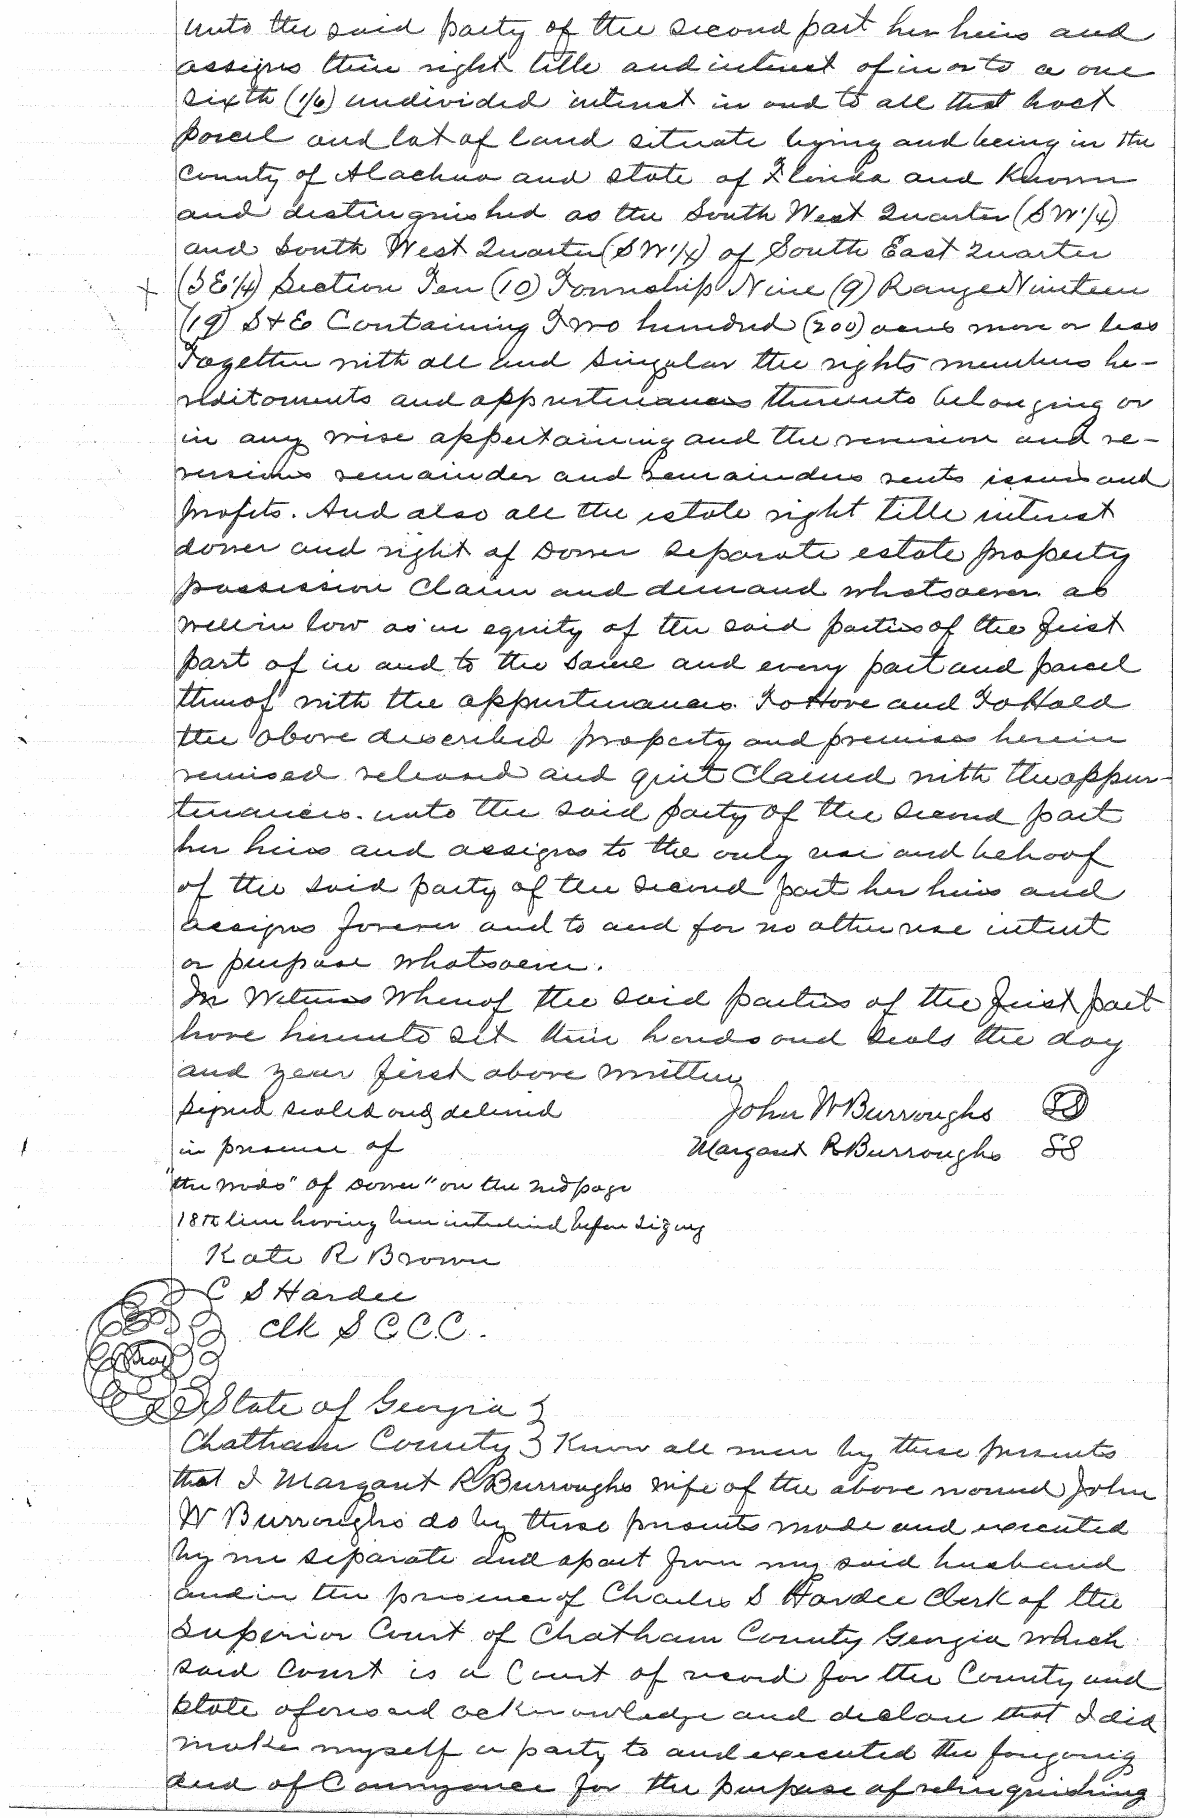 unto the said party of the second part her heirs and
assigns their right title and interest of in or to a one
sixth (1/6) undivided interest in and to all that tract
parcel and lot of land situate lying and being in the
county of Alachua and state of Florida and Known
and distinguished as the South West Quarter (SW 1/4)
and South West Quarter (SW 1/4) of South East Quarter
(SE 1/4) Section Ten (10) Township Nine (9) Range Nineteen
(19) S & E Containing Two hundred (200) acres more or less
Together with all and singular the rights members he-
reditaments and appurtenances thereunto belonging or
in any wise appertaining and the revision and re-
versions remainder and remainders rents issues and
profits. And also all the estate right title interest
dower and right of Dower separate estate property
possession Claim and demand whatsoever as
well in law as in equity of the said parties of the first
part of in and to the same and every part and parcel
thereof with the appurtenances. To Have and To Hold
the above described property and premises herein
remised released and quit Claimed with the appur-
tenances. unto the said party of the second part
her heirs and assigns to the only use and behoof
of the said party of the second part her heirs and
assigns forever and to and for no other use intent
or purpose whatsoever.
In Witness Whereof the said parties of the first part
have hereunto set their hands and seals the day
and year first above written
Signed sealed and delivered John W Burroughs SS
in presence of Margaret R Burroughs SS
"the words "of Dower" on the 2nd page
18th line having been interlined before signing
Kate R Brown
C S Hardee
Clk S C C C.
Seal
State of Georgia }
Chatham County } Know all men by these presents
that I Margaret R Burroughs wife of the above named John
W Burroughs do by these presents made and executed
by me separate and apart from my said husband
and in the presence of Charles S Hardee Clerk of the
Superior Court of Chatham County Georgia which
said Court is a Court of record for the County and
State aforesaid acknowledge and declare that I did
make myself a party to and executed the foregoing
deed of Conveyance for the purpose of relinquishing